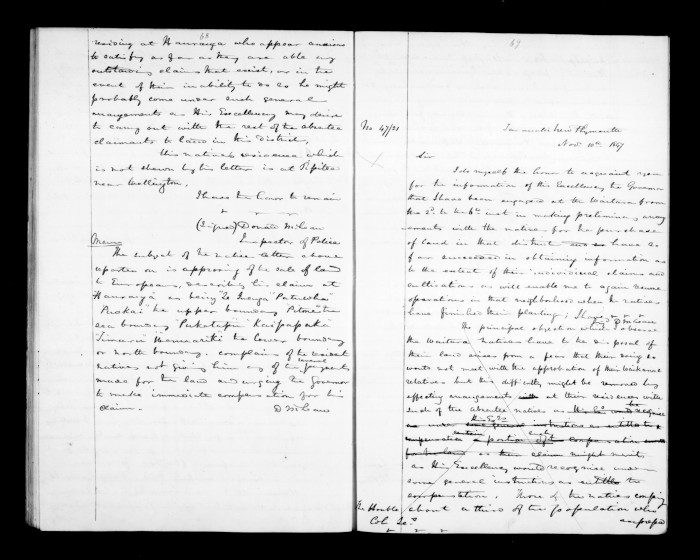 68
residing at Hauranga who appear anxious
to satisfy as far as they are able any
outstanding claims that exist, or in the
event of their inability to do so he might
probably come under such general
arrangements as His Excellency may desire
to carry out with the rest of the absentee
claimants to land in this district.
This natives residence which
is not shewn by his letter is at Pipitea
near Wellington.
I have the honor to remain
(Signed) Donald McLean
Inspector of Police
Memo
The subject of the native letter above
reported on is approving of the sale of land
to Europeans, describing his claim at
Hauranga as being
the upper boundary
sea boundary Puketapu Kaipapaka
the lower boundary
or north boundary. complains of the resident
natives not giving him any of the several payments
made for the land and urging the Governor
to make immediate compensation for his
claim.
D McLean
69
No 47/21
Taranaki New Plymouth
Nov 10th 1847
Sir
I do myself the honor to acquaint you
for the information of His Excellency the Governor
that I have been engaged at the Waitara from
the 2d to the 6th inst in making preliminary arrang
ements with the natives for the purchase
of land in that district and so have so
far succeeded in obtaining information as
to the extent of their individual claims and
cultivations as will enable me to again resume
operations in that neighborhood when the natives
have finished their planting; I have
Signed D McLean
The principal objection which I observe
the Waitara natives have to the disposal of
their land arises from a fear that their doing so
would not meet with the approbation of their Waikanae
relatives but this difficulty might be removed by
effecting arrangements with at their residences with
such of the absentee natives as
His Exy
compensation a portion
as their claim might merit
as His Excellency would recognise under
some general instructions as entitled to
compensation. Those of the natives comprising
about a third of the population who
The Honble
Col Secy